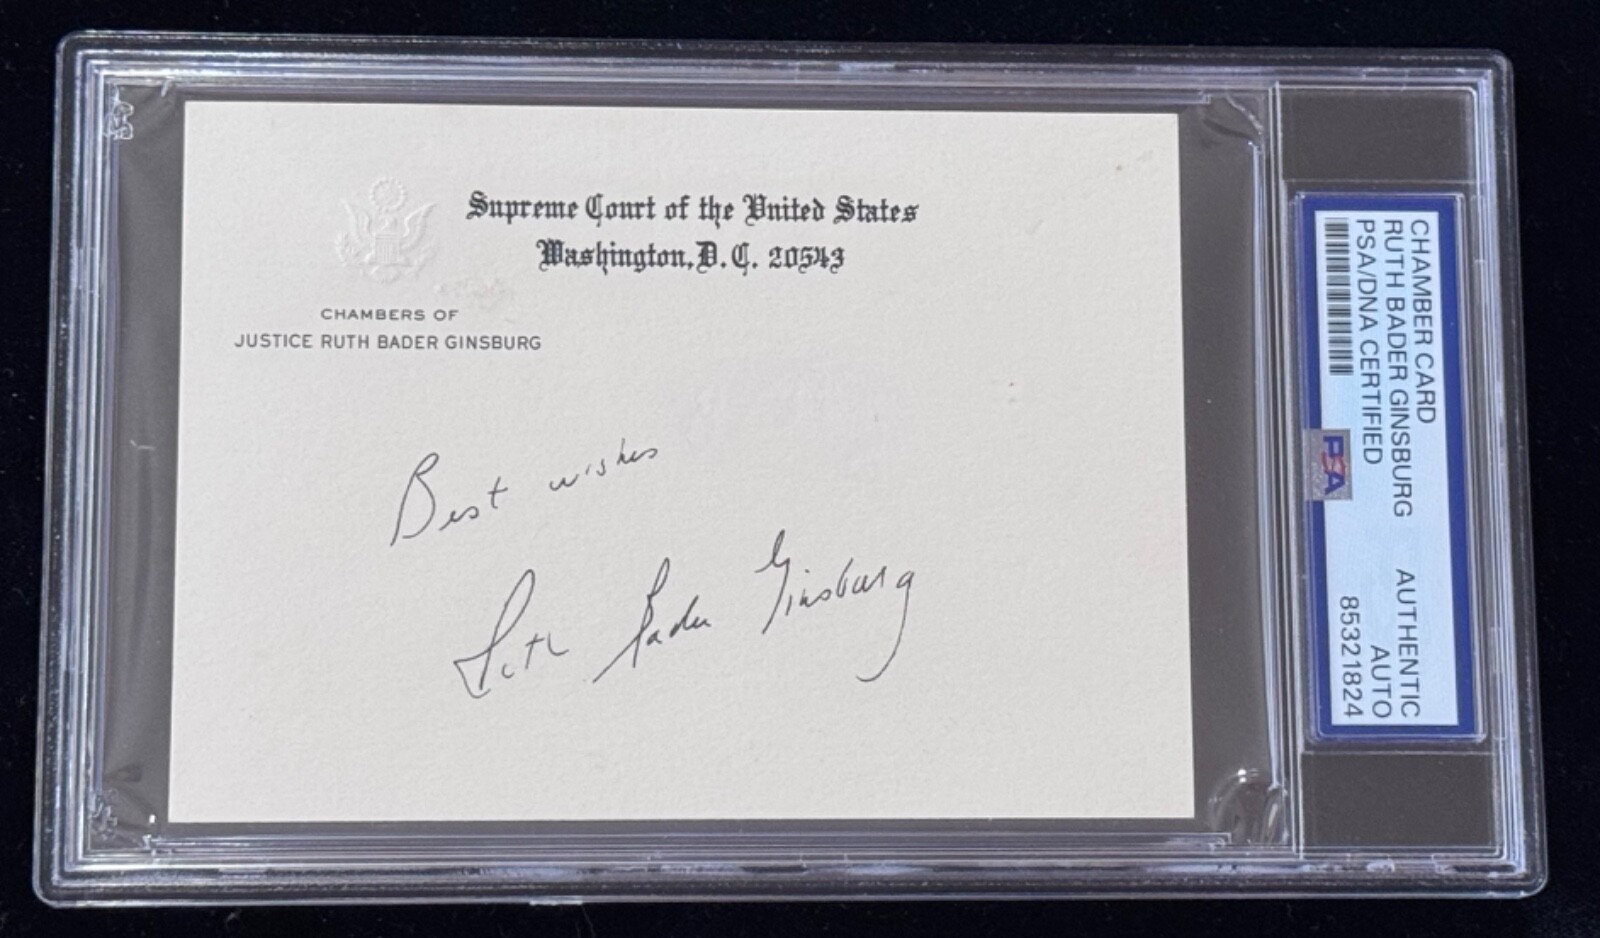 Supreme Court of the United States
Washington, D.C. 20543
CHAMBERS OF
JUSTICE RUTH BADER GINSBURG
Best wishes
Ruth Bader Ginsburg
CHAMBER CARD
RUTH BADER GINSBURG AUTHENTIC
PSA/DNA CERTIFIED AUTO
85321824
PSA